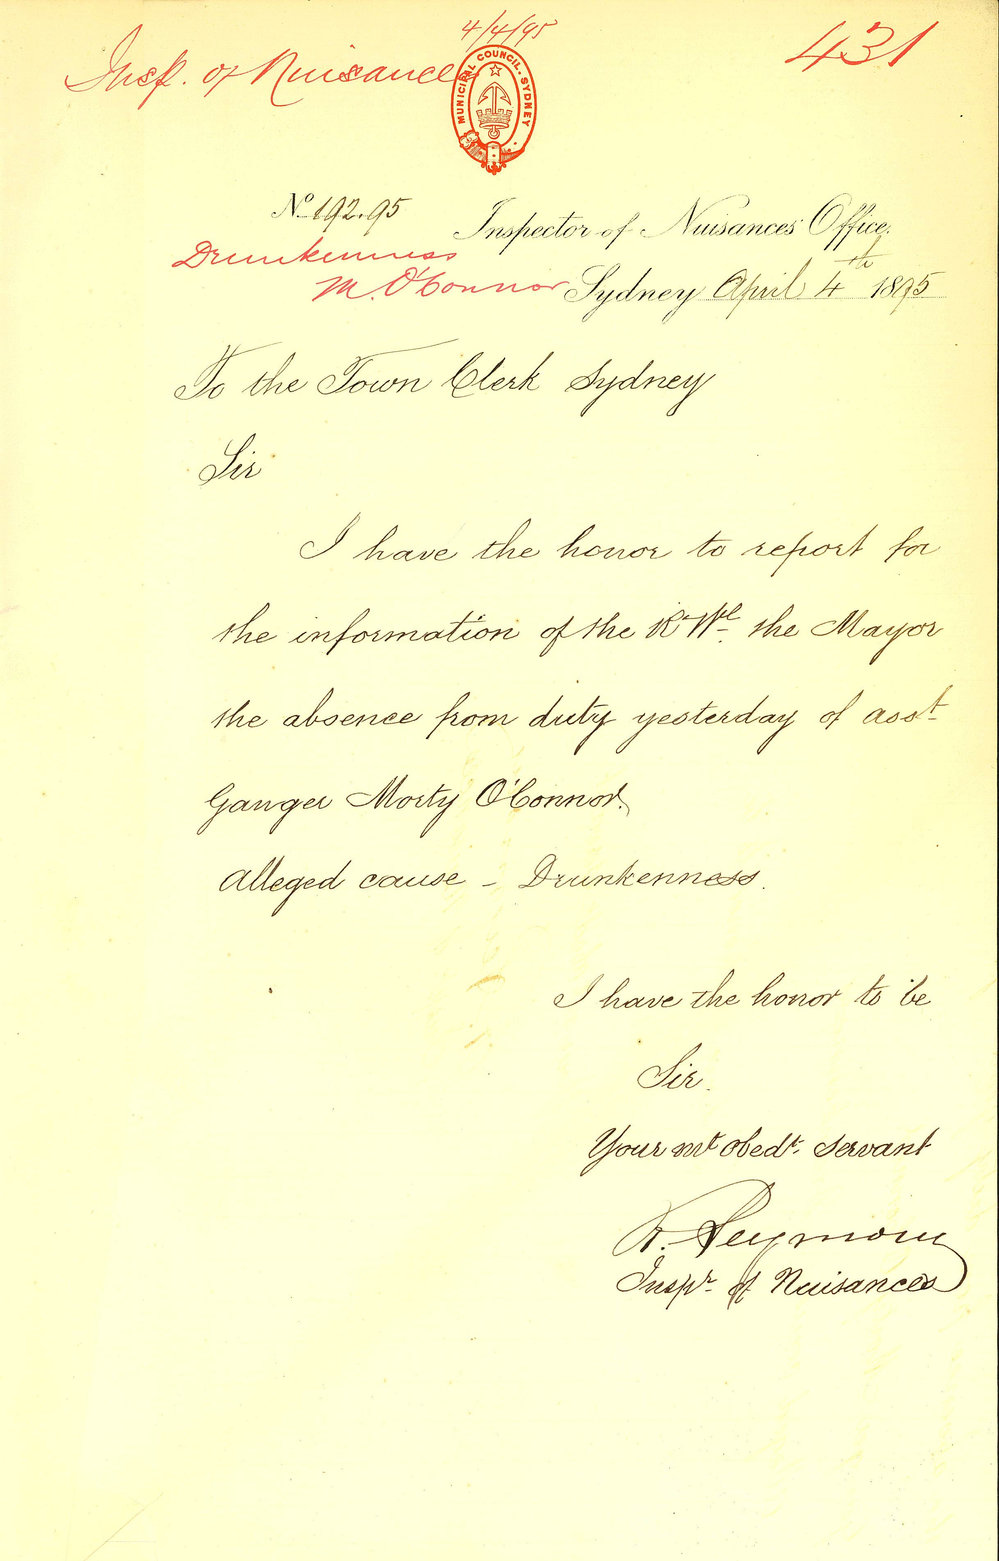 4/4/95
Insp. of Nuisances
431
MUNICIPAL COUNCIL. SYDNEY
No. 192.95
Inspector of Nuisances' Office.
Drunkenness
M. O'Connor
Sydney April 4th 1895
To the Town Clerk Sydney
Sir
I have the honor to report for
the information of the Rt Wl. the Mayor
the absence from duty yesterday of asst
Ganger Morty O'Connor.
Alleged cause - Drunkenness.
I have the honor to be
Sir.
Your mt obedt. servant
R. Seymour
Inspr. of Nuisances